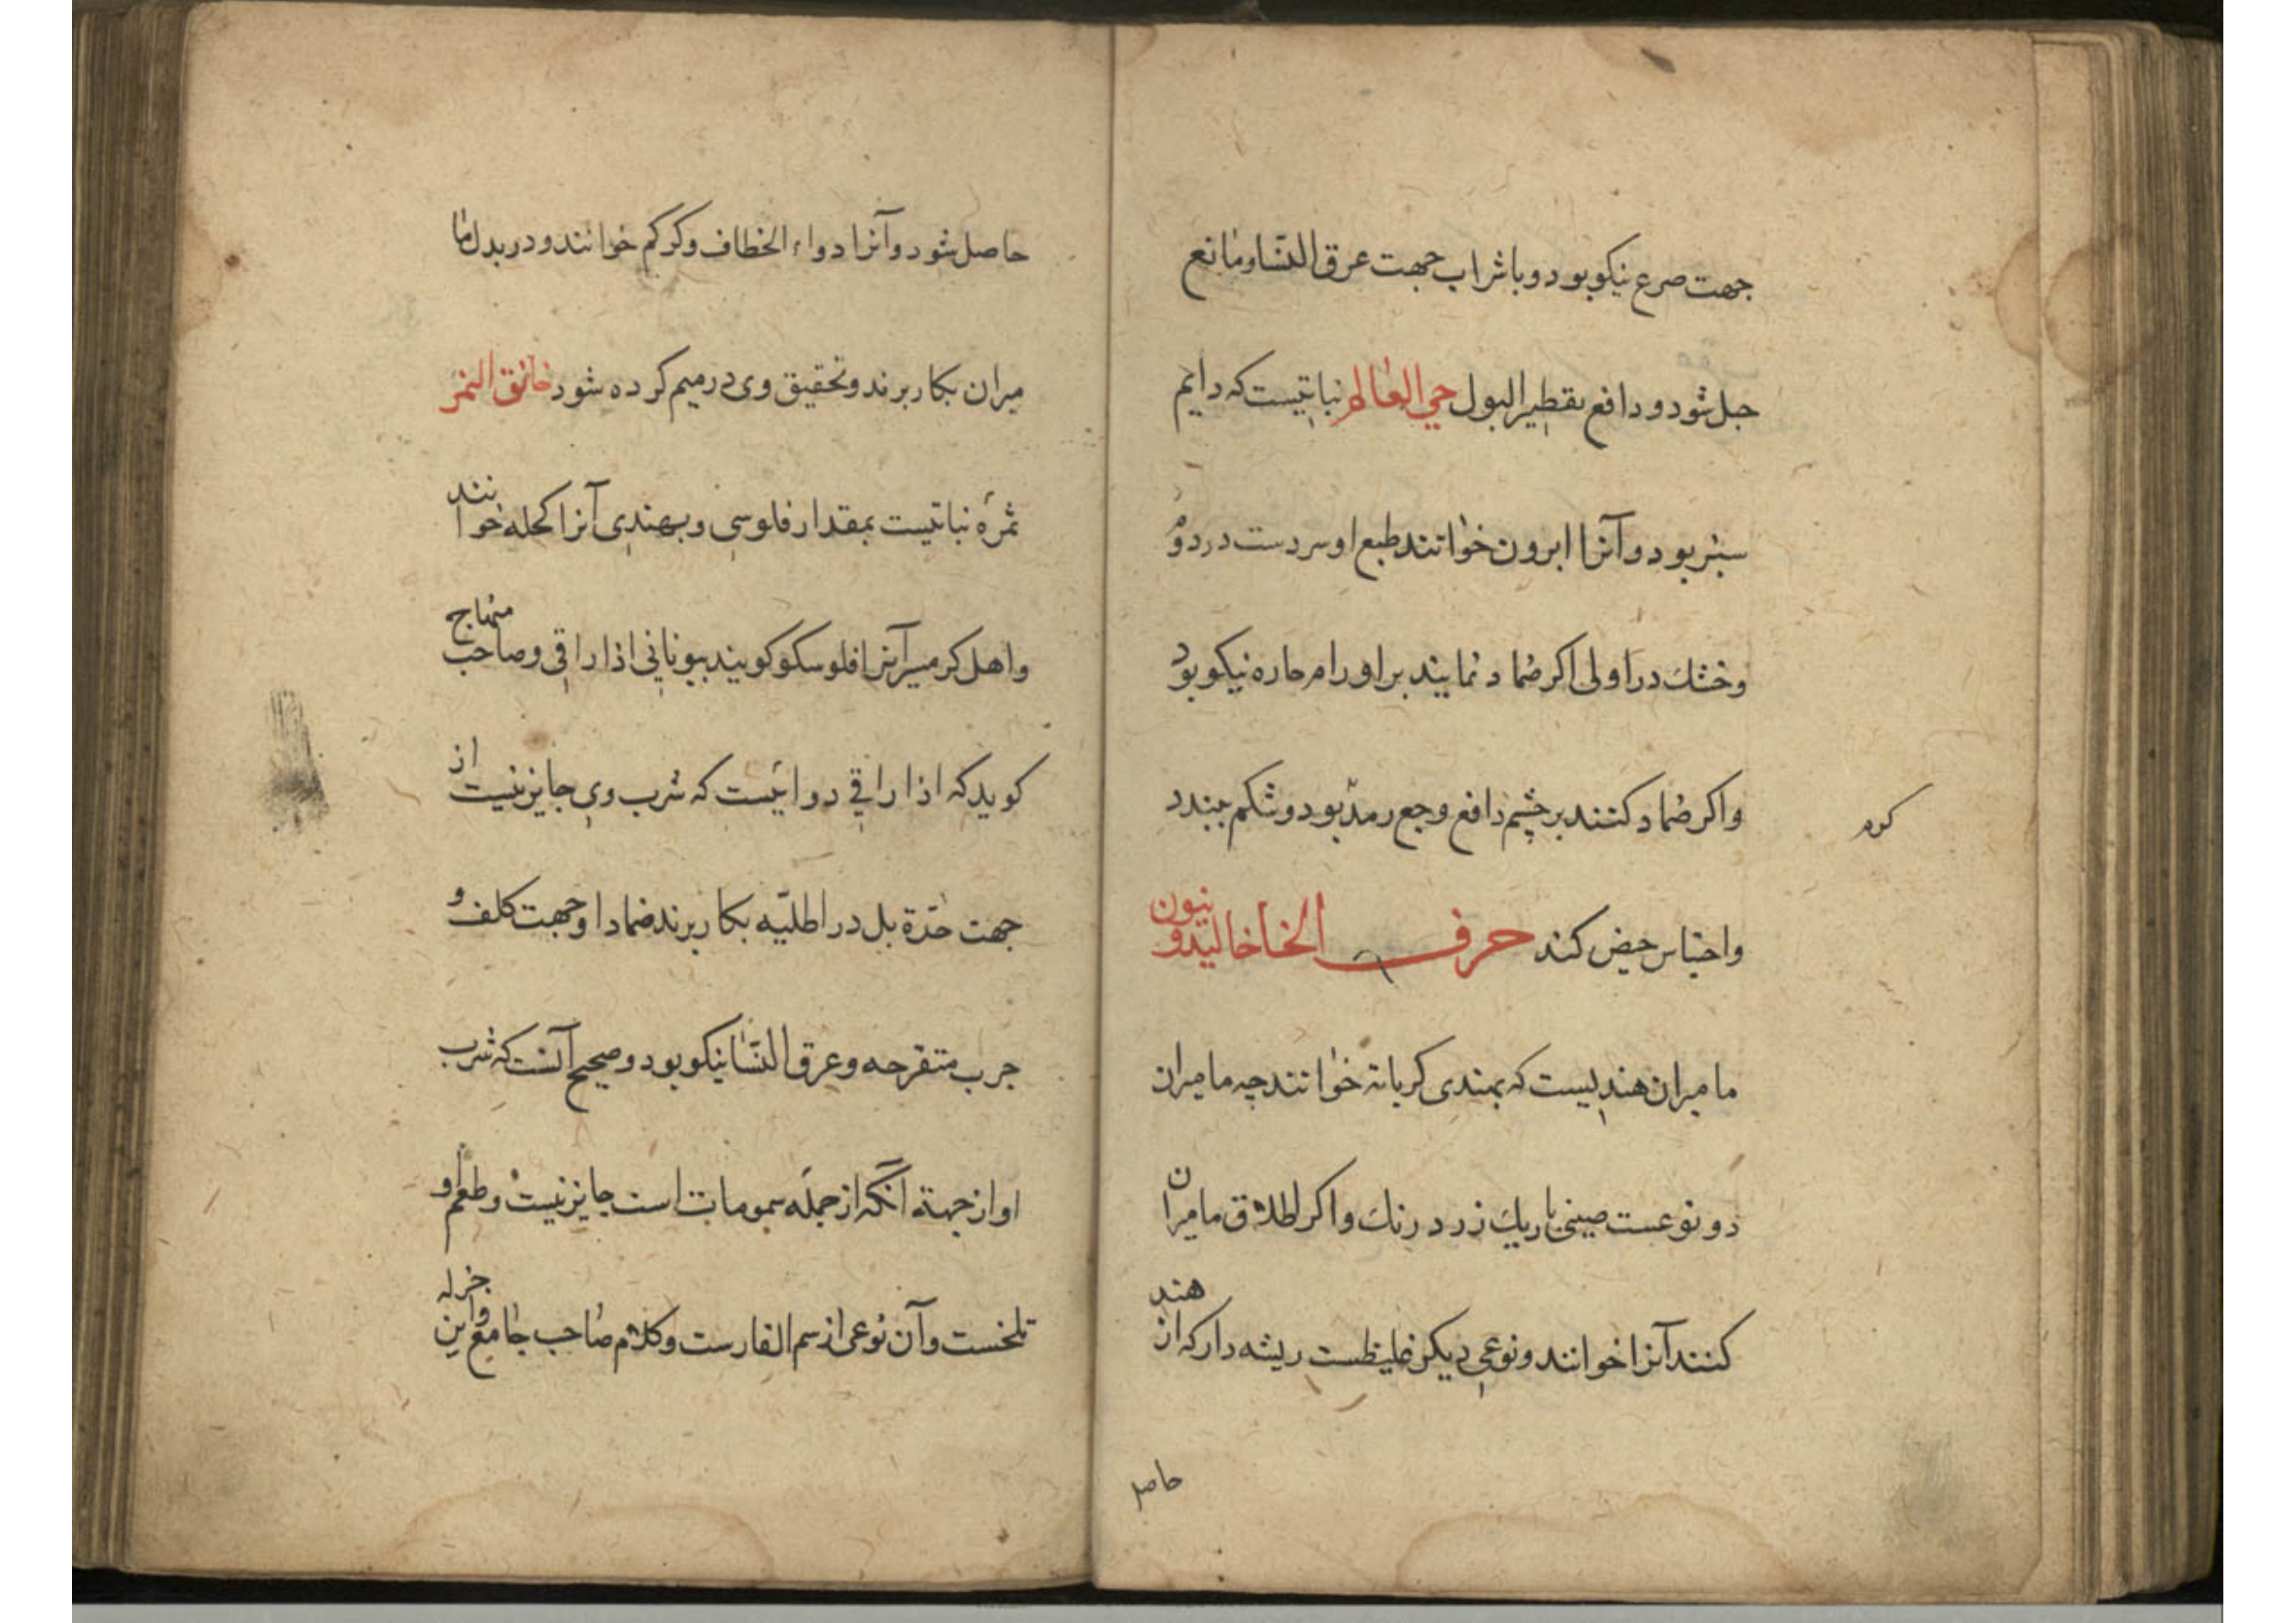 جهت صرع نیکو بود و با شراب جهت عرق النّسا و مانع
حبل شود و دافع تقطیر البول حی العالم نباتیست که دایم
سبز بود و آنرا ابرون خوانند طبع او سردست در دوم
و خشک در اولی اکر ضماد نمایند بر اورام حاره نیکو بود
و اکر ضماد کنند بر چشم دافع وجع رمد بود و شکم ببندد
و احتباس حیض کند حرف الخا خالیدونیون
مامیران هندیست که بهندی خوانند چه مامیران
دو نوعست صینی باریک زرد رنک و اکر اطلاق مامیران
کنند آنرا خوانند و نوعی دیکر غلیظست ریشه دار که از هند
حاصل
حاصل شود و آنرا دواء الخطاف و کرکم خوانند و در بدل ما
میران بکار برند و تحقیق وی در میم کرده شود خانق النمر
ثمرهٔ نباتیست بمقدار فلوسی و بهندی آنرا کحله خوانند
و اهل کرمسیر آنرا فلوسکو کویند بیونانی اذاراقی و صاحب منهاج
کوید که اذاراقی دوائیست که شرب وی جایز نیست از
جهت حدّة بل در اطلیّه بکار برند ضمادا و جهت کلف و
جرب متقرحه و عرق النّسا نیکو بود و صحیح آنست که شرب
او از جهة آنکه از جمله سمومات است جایز نیست و طعم او
تلخست و آن نوعی از سم الفارست و کلام صاحب جامع و این جزله